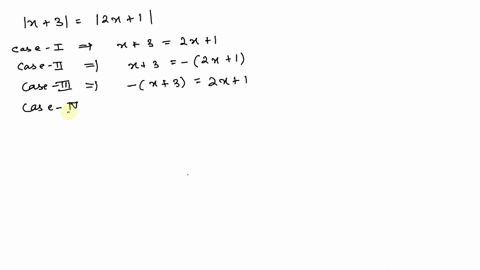 |x+3| = |2x+1|
case-I ⇒ x+3 = 2x+1
case-II ⇒ x+3 = -(2x+1)
case-III ⇒ -(x+3) = 2x+1
case-IV